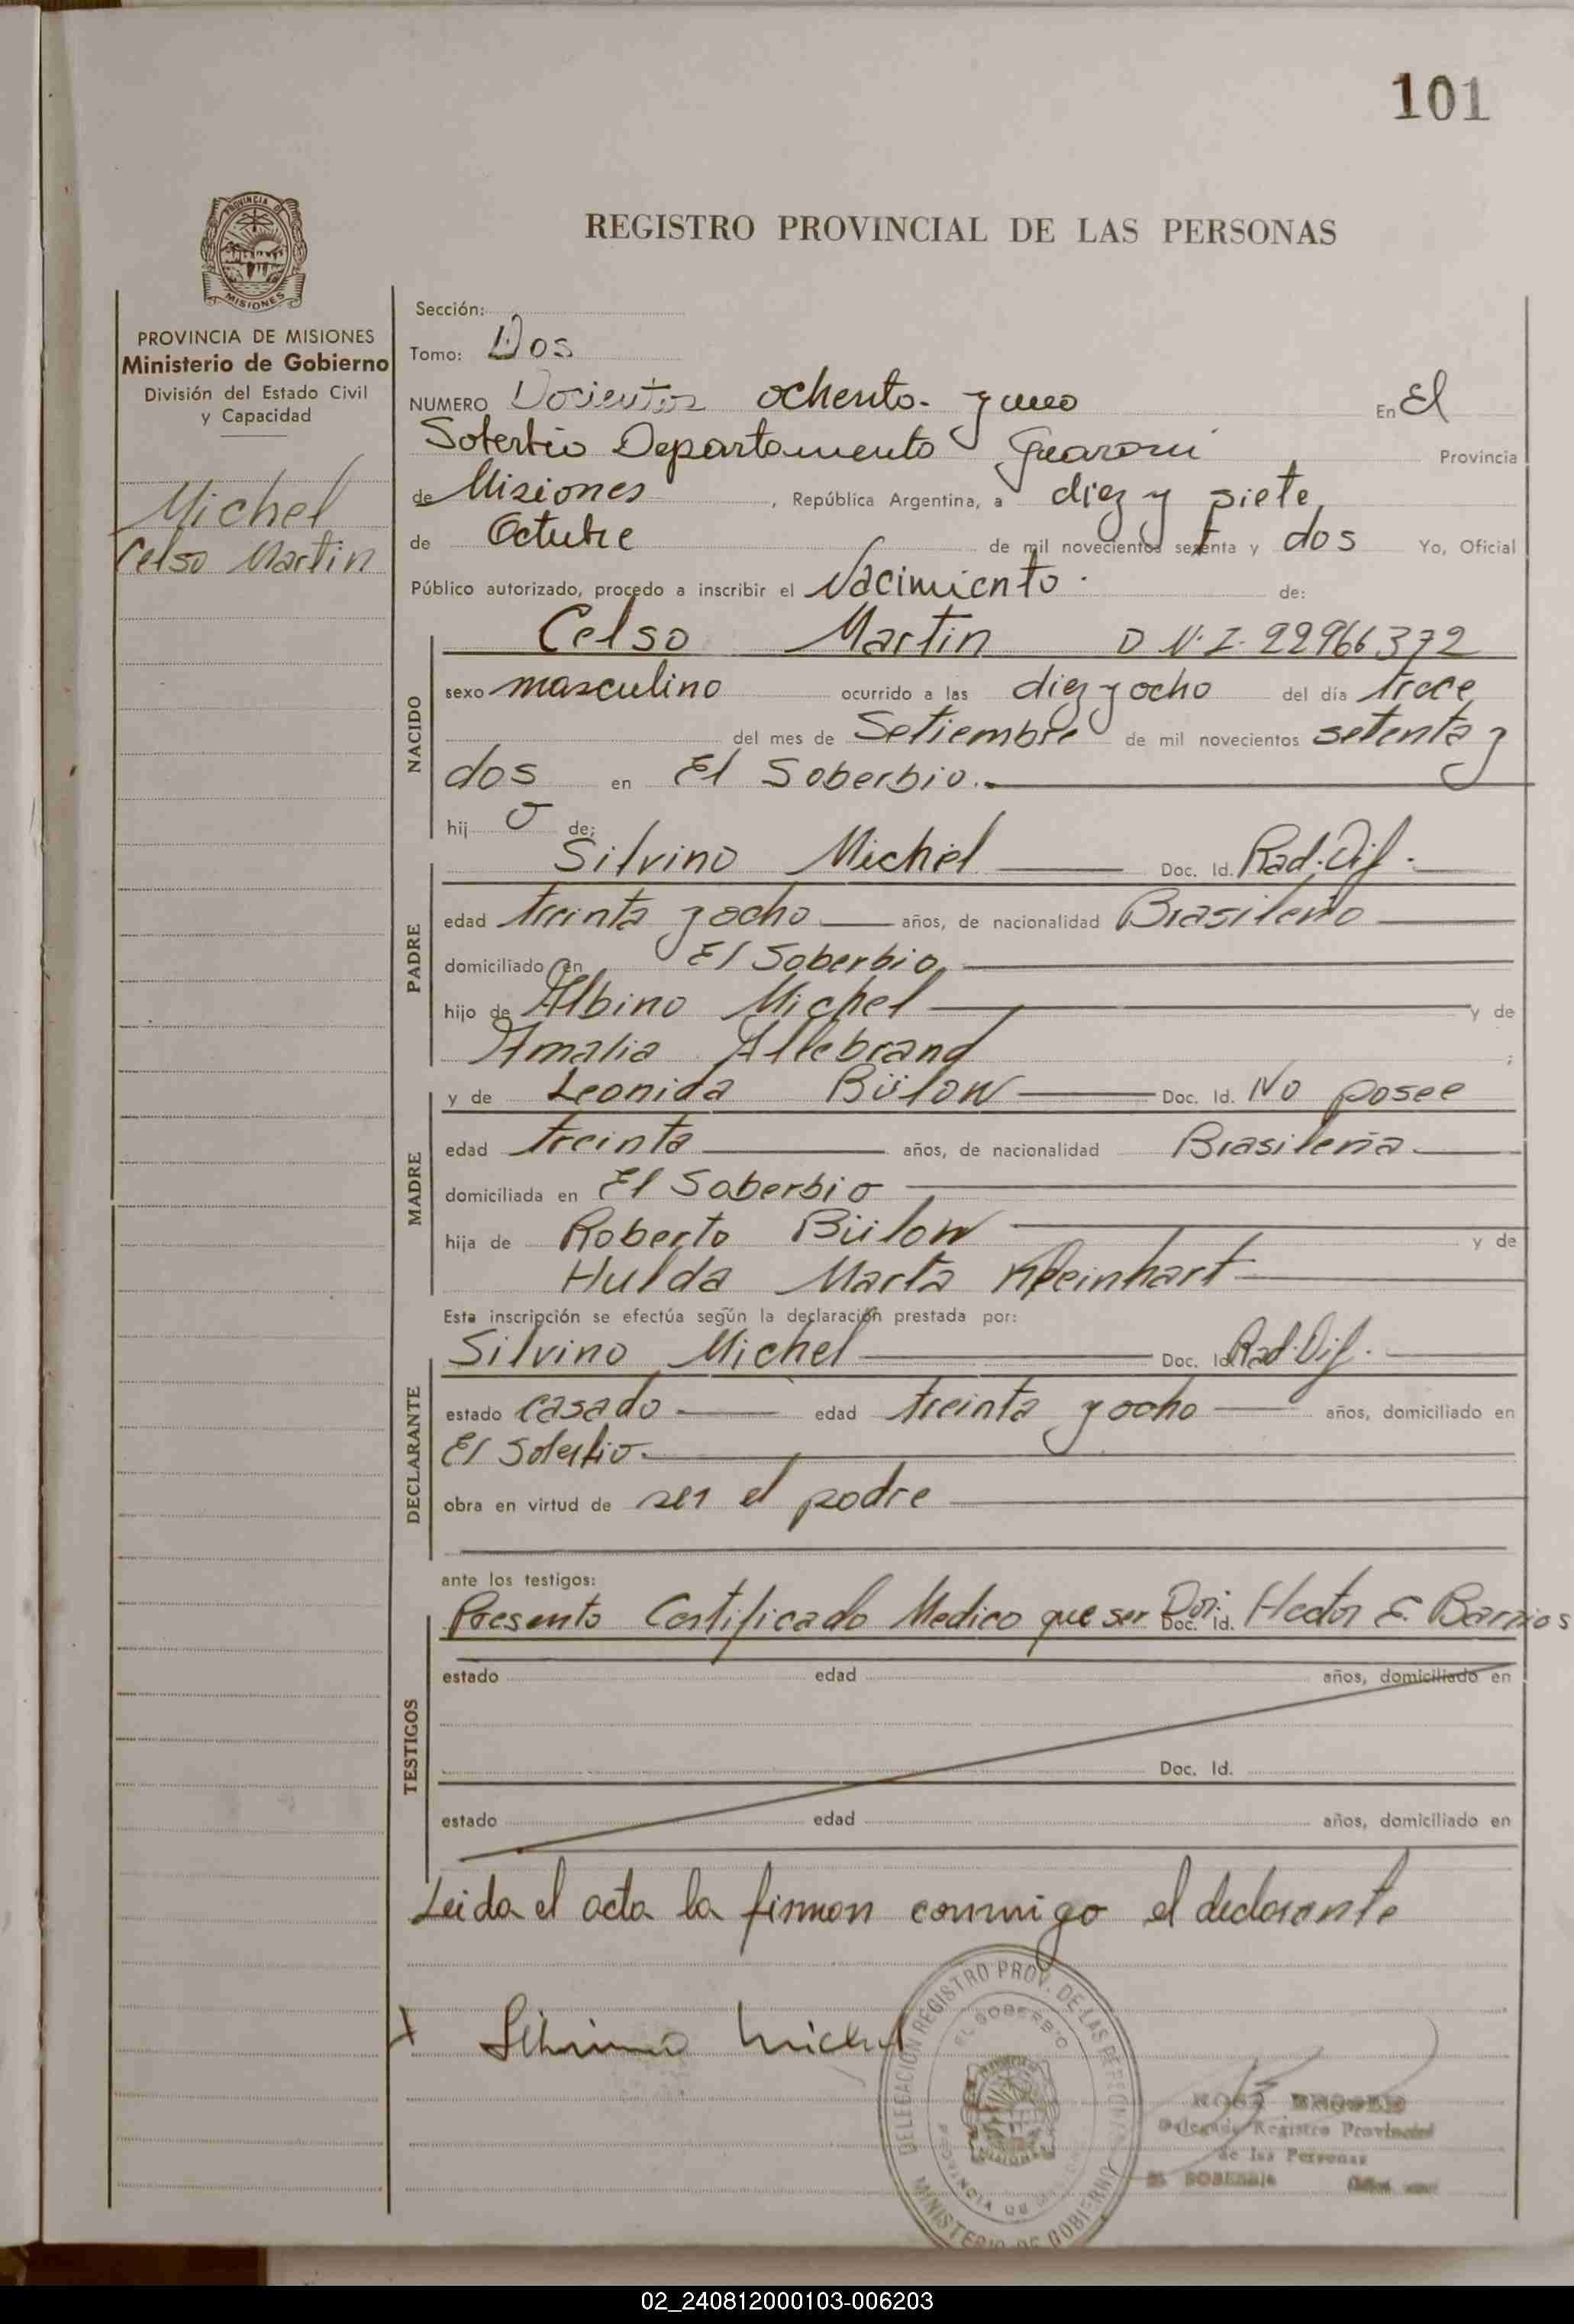 101
PROVINCIA DE MISIONES
REGISTRO PROVINCIAL DE LAS PERSONAS
PROVINCIA DE MISIONES
Ministerio de Gobierno
División del Estado Civil
y Capacidad
Michel
Celso Martin
Sección:
Tomo: Dos
NUMERO Docientos ochenta y uno En El
Soberbio Departamento Guarani Provincia
de Misiones, República Argentina, a diez y siete
de Octubre de mil novecientos setenta y dos Yo, Oficial
Público autorizado, procedo a inscribir el Nacimiento. de:
NACIDO
Celso Martin D.N.I. 22966372
sexo masculino ocurrido a las diez y ocho del día trece
del mes de Setiembre de mil novecientos setenta y
dos en El Soberbio.
hijo de:
PADRE
Silvino Michel Doc. Id. Rad. Dif.
edad treinta y ocho años, de nacionalidad Brasileño
domiciliado en El Soberbio
hijo de Albino Michel y de
Amalia Allebrand ;
MADRE
y de Leonida Bülow Doc. Id. No posee
edad treinta años, de nacionalidad Brasileña
domiciliada en El Soberbio
hija de Roberto Bülow y de
Hulda Marta Kleinhart
Esta inscripción se efectúa según la declaración prestada por:
DECLARANTE
Silvino Michel Doc. Id. Rad. Dif.
estado casado edad treinta y ocho años, domiciliado en
El Soberbio.
obra en virtud de ser el padre
ante los testigos:
TESTIGOS
Presento Certificado Medico que ser Dor. Doc. Id. Hector E. Barrios
estado edad años, domiciliado en
Doc. Id.
estado edad años, domiciliado en
Leida el acta la firman conmigo el declarante
Silvino Michel
DELEGACION REGISTRO PROV. DE LAS PERSONAS
EL SOBERBIO
PROVINCIA DE MISIONES
MINISTERIO DE GOBIERNO
Delegado Registro Provincial
de las Personas
EL SOBERBIO
02_240812000103-006203